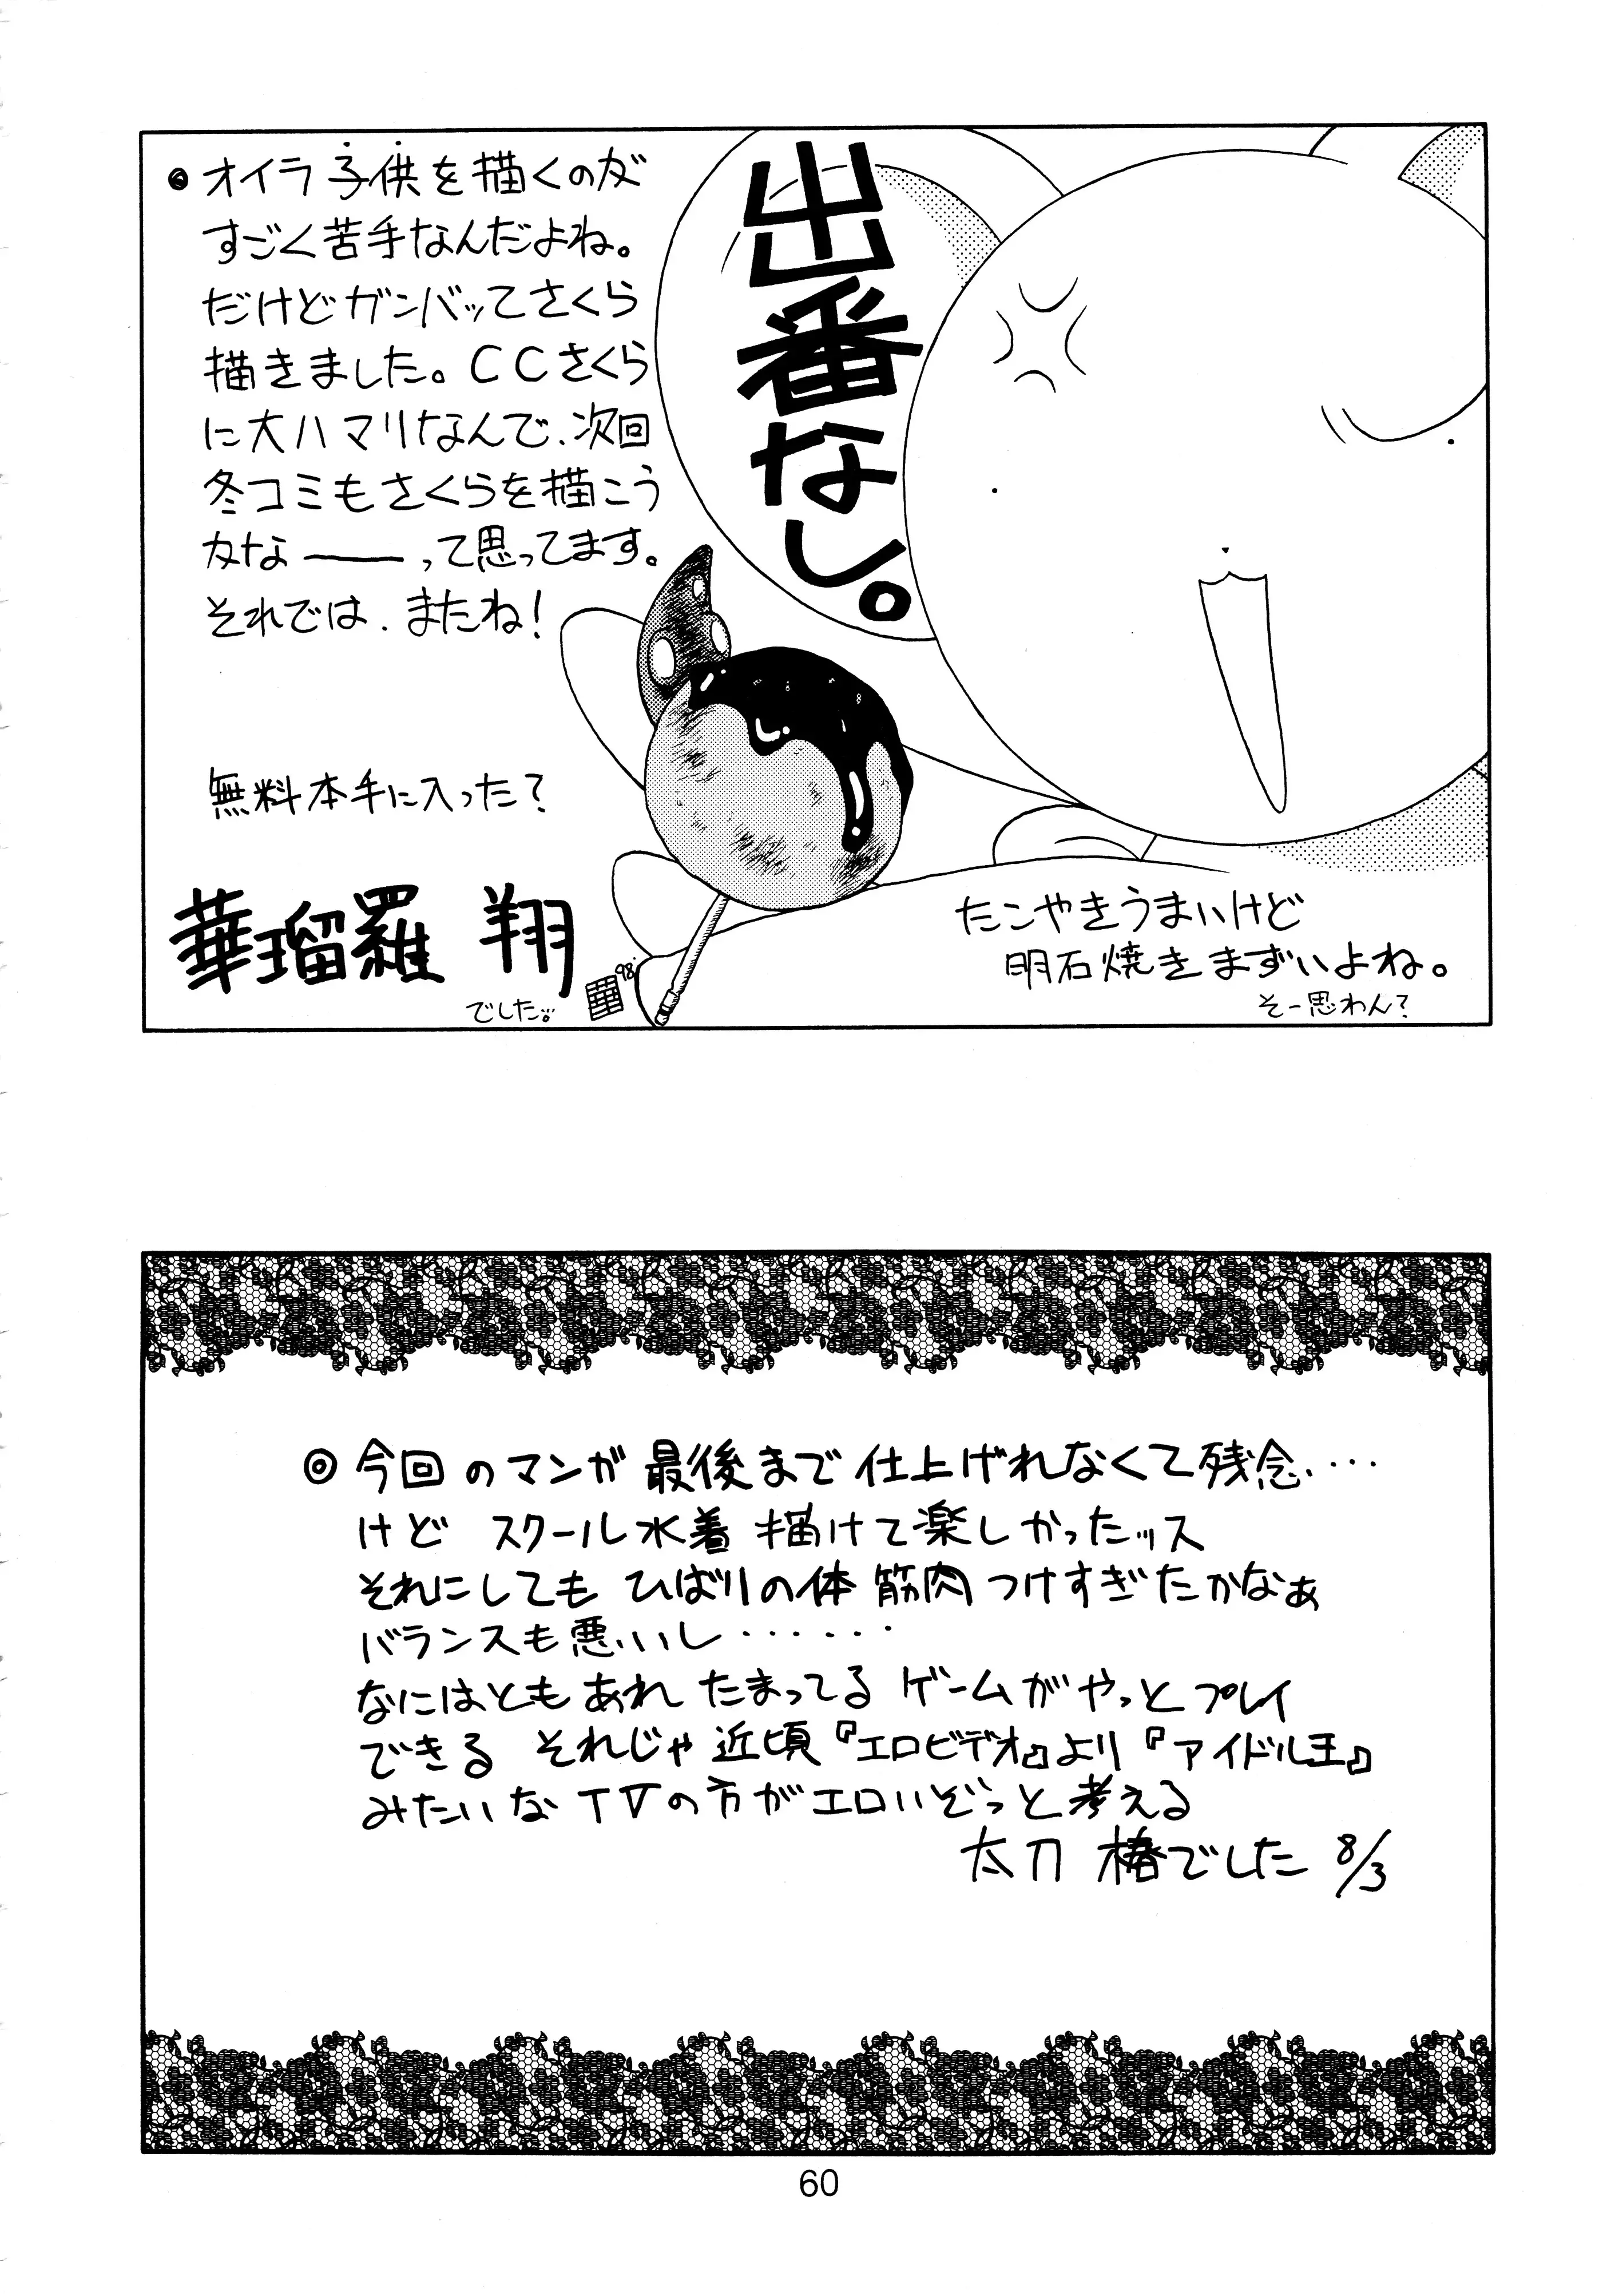 ●オイラ子供を描くのが
すごく苦手なんだよね。
だけどガンバッてさくら
描きました。CCさくら
に大ハマリなんで、次回
冬コミもさくらを描こう
かな――って思ってます。
それでは、またね!
無料本手に入った?
華瑠羅 翔
でした。
98'
出番なし。
たこやきうまいけど
明石焼きまずいよね。
そー思わん?
◎今回のマンガ最後まで仕上げれなくて残念、‥‥
けど スクール水着 描けて楽しかったッス
それにしても ひばりの体 筋肉つけすぎたかなぁ
バランスも悪いいし‥‥‥‥
なにはともあれ たまってる ゲームがやっとプレイ
できる それじゃ近頃『エロビデオ』より『アイドル王』
みたいなTVの方がエロいぞっと考える
太刀 椿でした 8/3
60